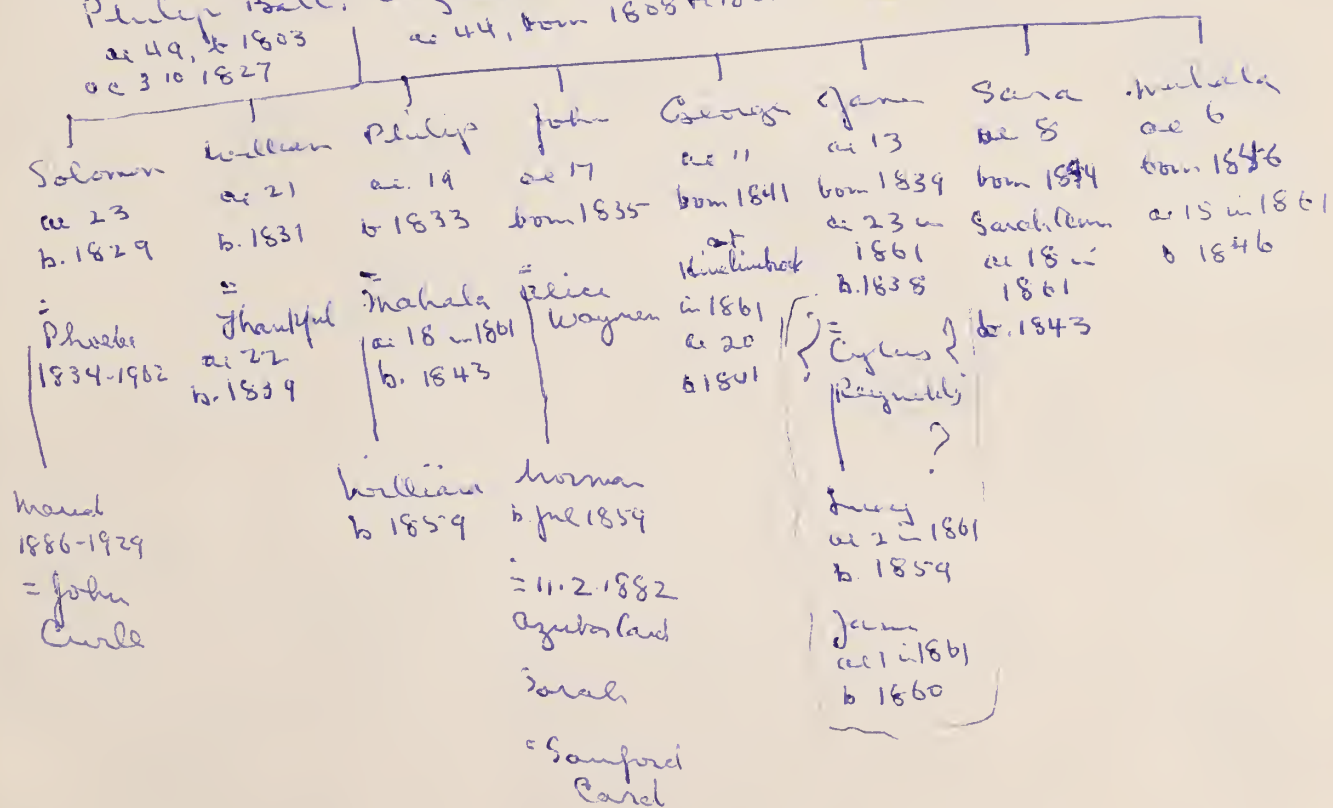 Philip Ball
ae 49, b 1803
ae 44, born 1808
oc 3 10 1827
Solomon
ae 23
b. 1829
=
Phoebe
1834-1902
Maud
1886-1929
= John
Curle
William
ae 21
b. 1831
=
Thankful
ae 22
b. 1839
Philip
ae. 19
b 1833
=
Mahala
ae 18 in 1861
b. 1843
William
b 1859
John
ae 17
born 1835
=
Alice
Waymen
Norman
b. Jul 1859
= 11.2.1882
Azuba Card
Sarah
= Sanford
Card
George
ae 11
born 1841
at
in 1861
ae 20
b 1841
Jane
ae 13
born 1839
ae 23 in
1861
b. 1838
? = Cyrus ?
Reynolds
?
Lucy
ae 2 in 1861
b. 1859
Jane
ae 1 in 1861
b 1860
Sara
ae 8
born 1844
Sarah Ann
ae 18 in
1861
b. 1843
Mahala
ae 6
born 1846
ae 15 in 1861
b 1846